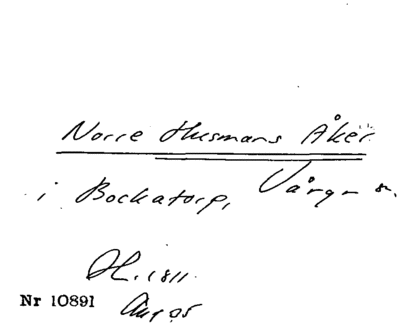 Norre Husmans Åker
i Bockatorp, Vårgn s.
H. 1811.
Nr 10891